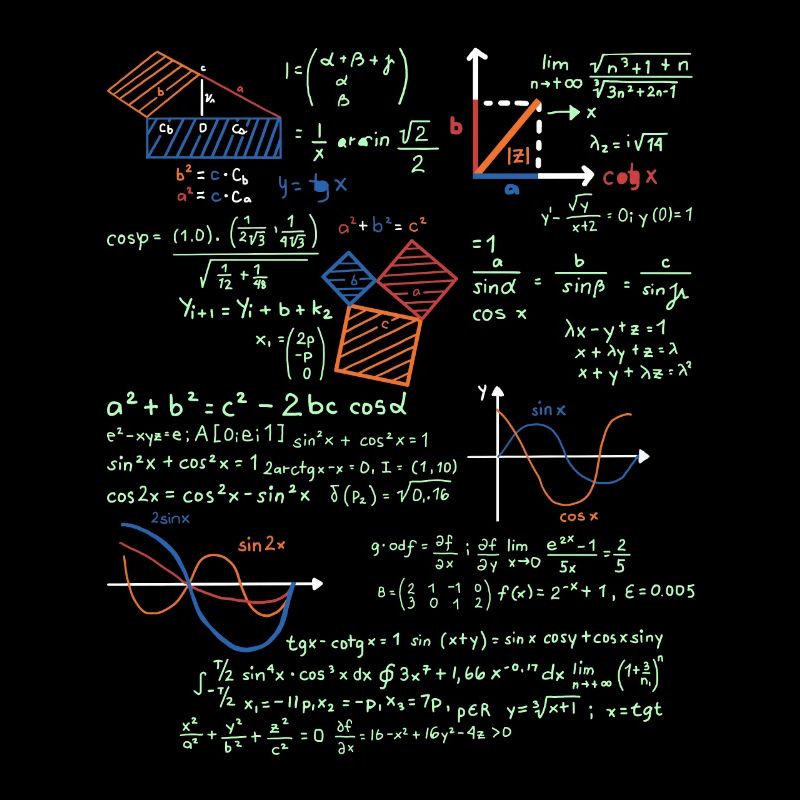 c
b
a
v₁
Cb D Ca
b² = c · Cb
a² = c · Ca
y = tg x
1 = (α + β + γ
α
β)
= 1/x arcsin √2/2
b
|z|
a
x
lim n→+∞ √(n³+1+n) / ∛(3n²+2n-1)
λ₂ = i√14
cotg x
y' - √y/(x+2) = 0; y(0)=1
cosφ = (1.0) · (1/2√3 , 1/4√3) / √(1/12 + 1/48)
a² + b² = c²
b
a
c
Yi+1 = Yi + b + k₂
x₁ = (2p
-p
0)
=1
a/sinα = b/sinβ = c/sinγ
cos x
λx - y + z = 1
x + λy + z = λ
x + y + λz = λ²
a² + b² = c² - 2bc cosα
e² - xyz = e; A[0;e;1] sin²x + cos²x = 1
sin²x + cos²x = 1 2arctgx - x = 0, I = (1,10)
cos2x = cos²x - sin²x δ(P₂) = √0,.16
y
sin x
cos x
2sinx
sin2x
g·odf = ∂f/∂x ; ∂f/∂y lim x→0 (e²ˣ - 1)/5x = 2/5
B = (2 1 -1 0
3 0 1 2) f(x) = 2⁻ˣ + 1, Ɛ = 0.005
tgx - cotgx = 1 sin (x+y) = sinx cosy + cosx siny
∫-T/2 T/2 sin⁴x · cos³x dx ∮ 3x⁷ + 1,66 x⁻⁰·¹⁷ dx lim n→+∞ (1 + 3/n₁)ⁿ
x₁ = -11p, x₂ = -p, x₃ = 7p, pER y = ∛(x+1) ; x = tgt
x²/a² + y²/b² + z²/c² = 0 ∂f/∂x = 16 - x² + 16y² - 4z > 0